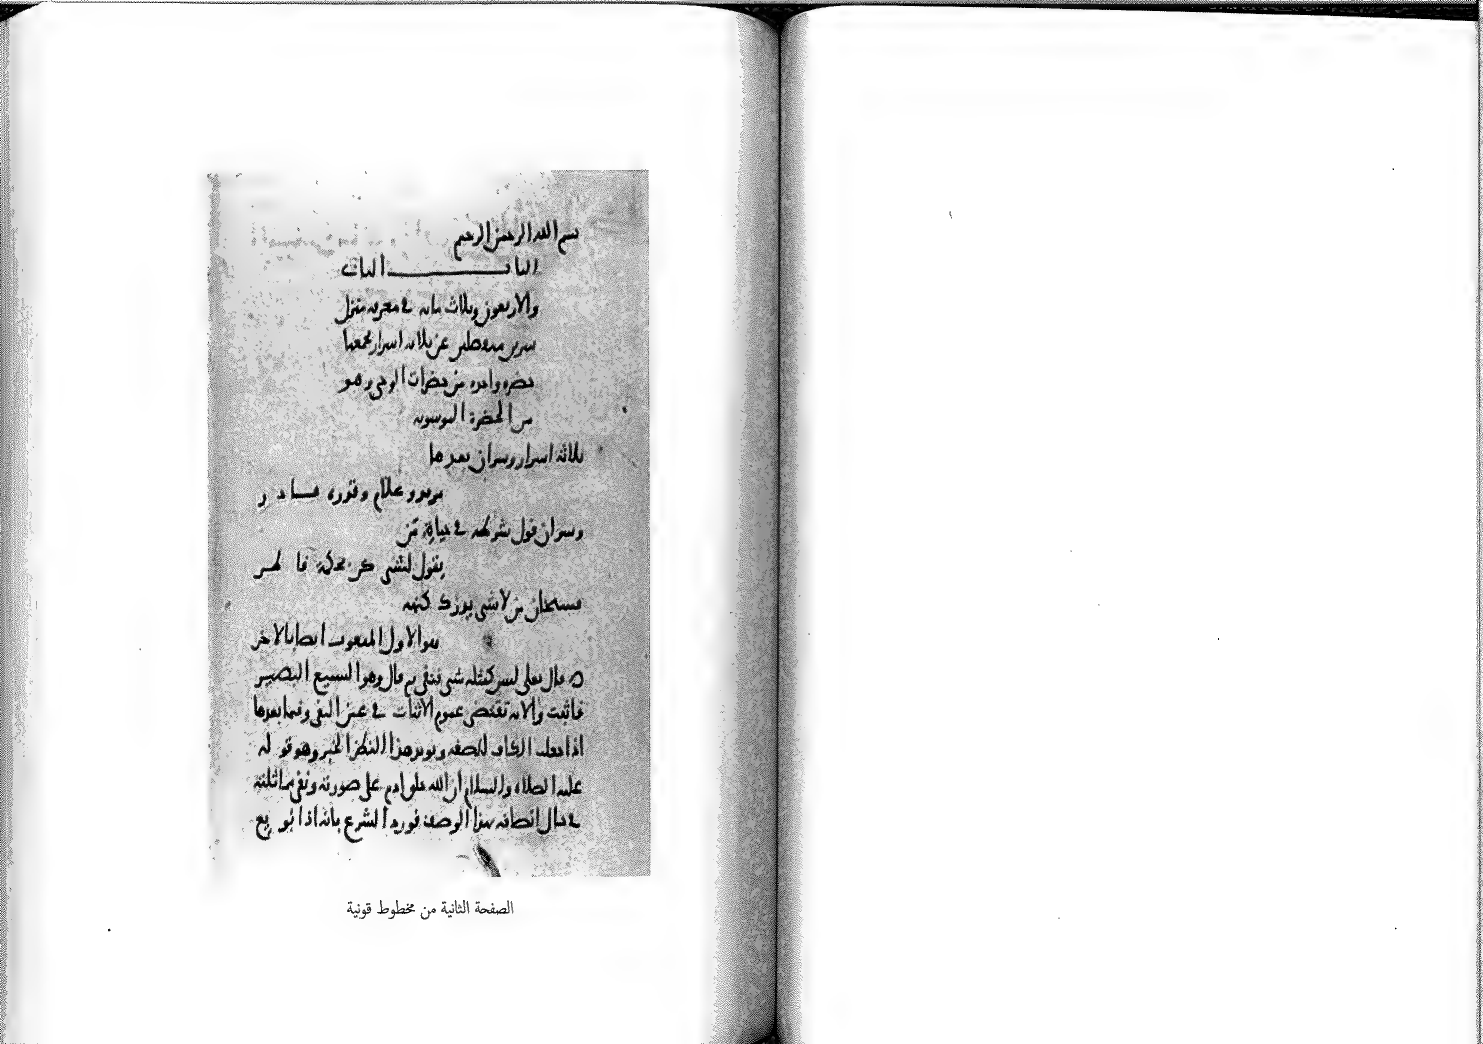 بسم الله الرحمن الرحيم
الباب الثانى
والاربعون وثلاث مائة فى معرفة منزل
سرين منفصلين عن ثلاثة اسرار يجمعها
حضرة واحدة من حضرات الوحى وهو
من الحضرة الموسوية
ثلاثة اسرار وسران بعدها
مريد وعلام وقدرة قادر
وسران قول شرطه فى حياة من
يقول لشى كن بحكمة فاطر
فسبحان من لا شى يدرك كنهه
هو الاول المنعوت ايضا بالاخر
قال تعلى ليس كمثله شى فنفى ثم قال وهو السميع البصير
فاثبت والاية تقتضى عموم الاثبات فى عين النفى وفيما بعدها
اذا جعلت الكاف للصفة ويويد هذا النظر الخبر وهو قوله
عليه الصلاة والسلام ان الله خلق ادم على صورته ونفى مماثلته
فى حال اتصافه بهذا الوصف فورد الشرع بانه اذا بويع
الصفحة الثانية من مخطوط قونية